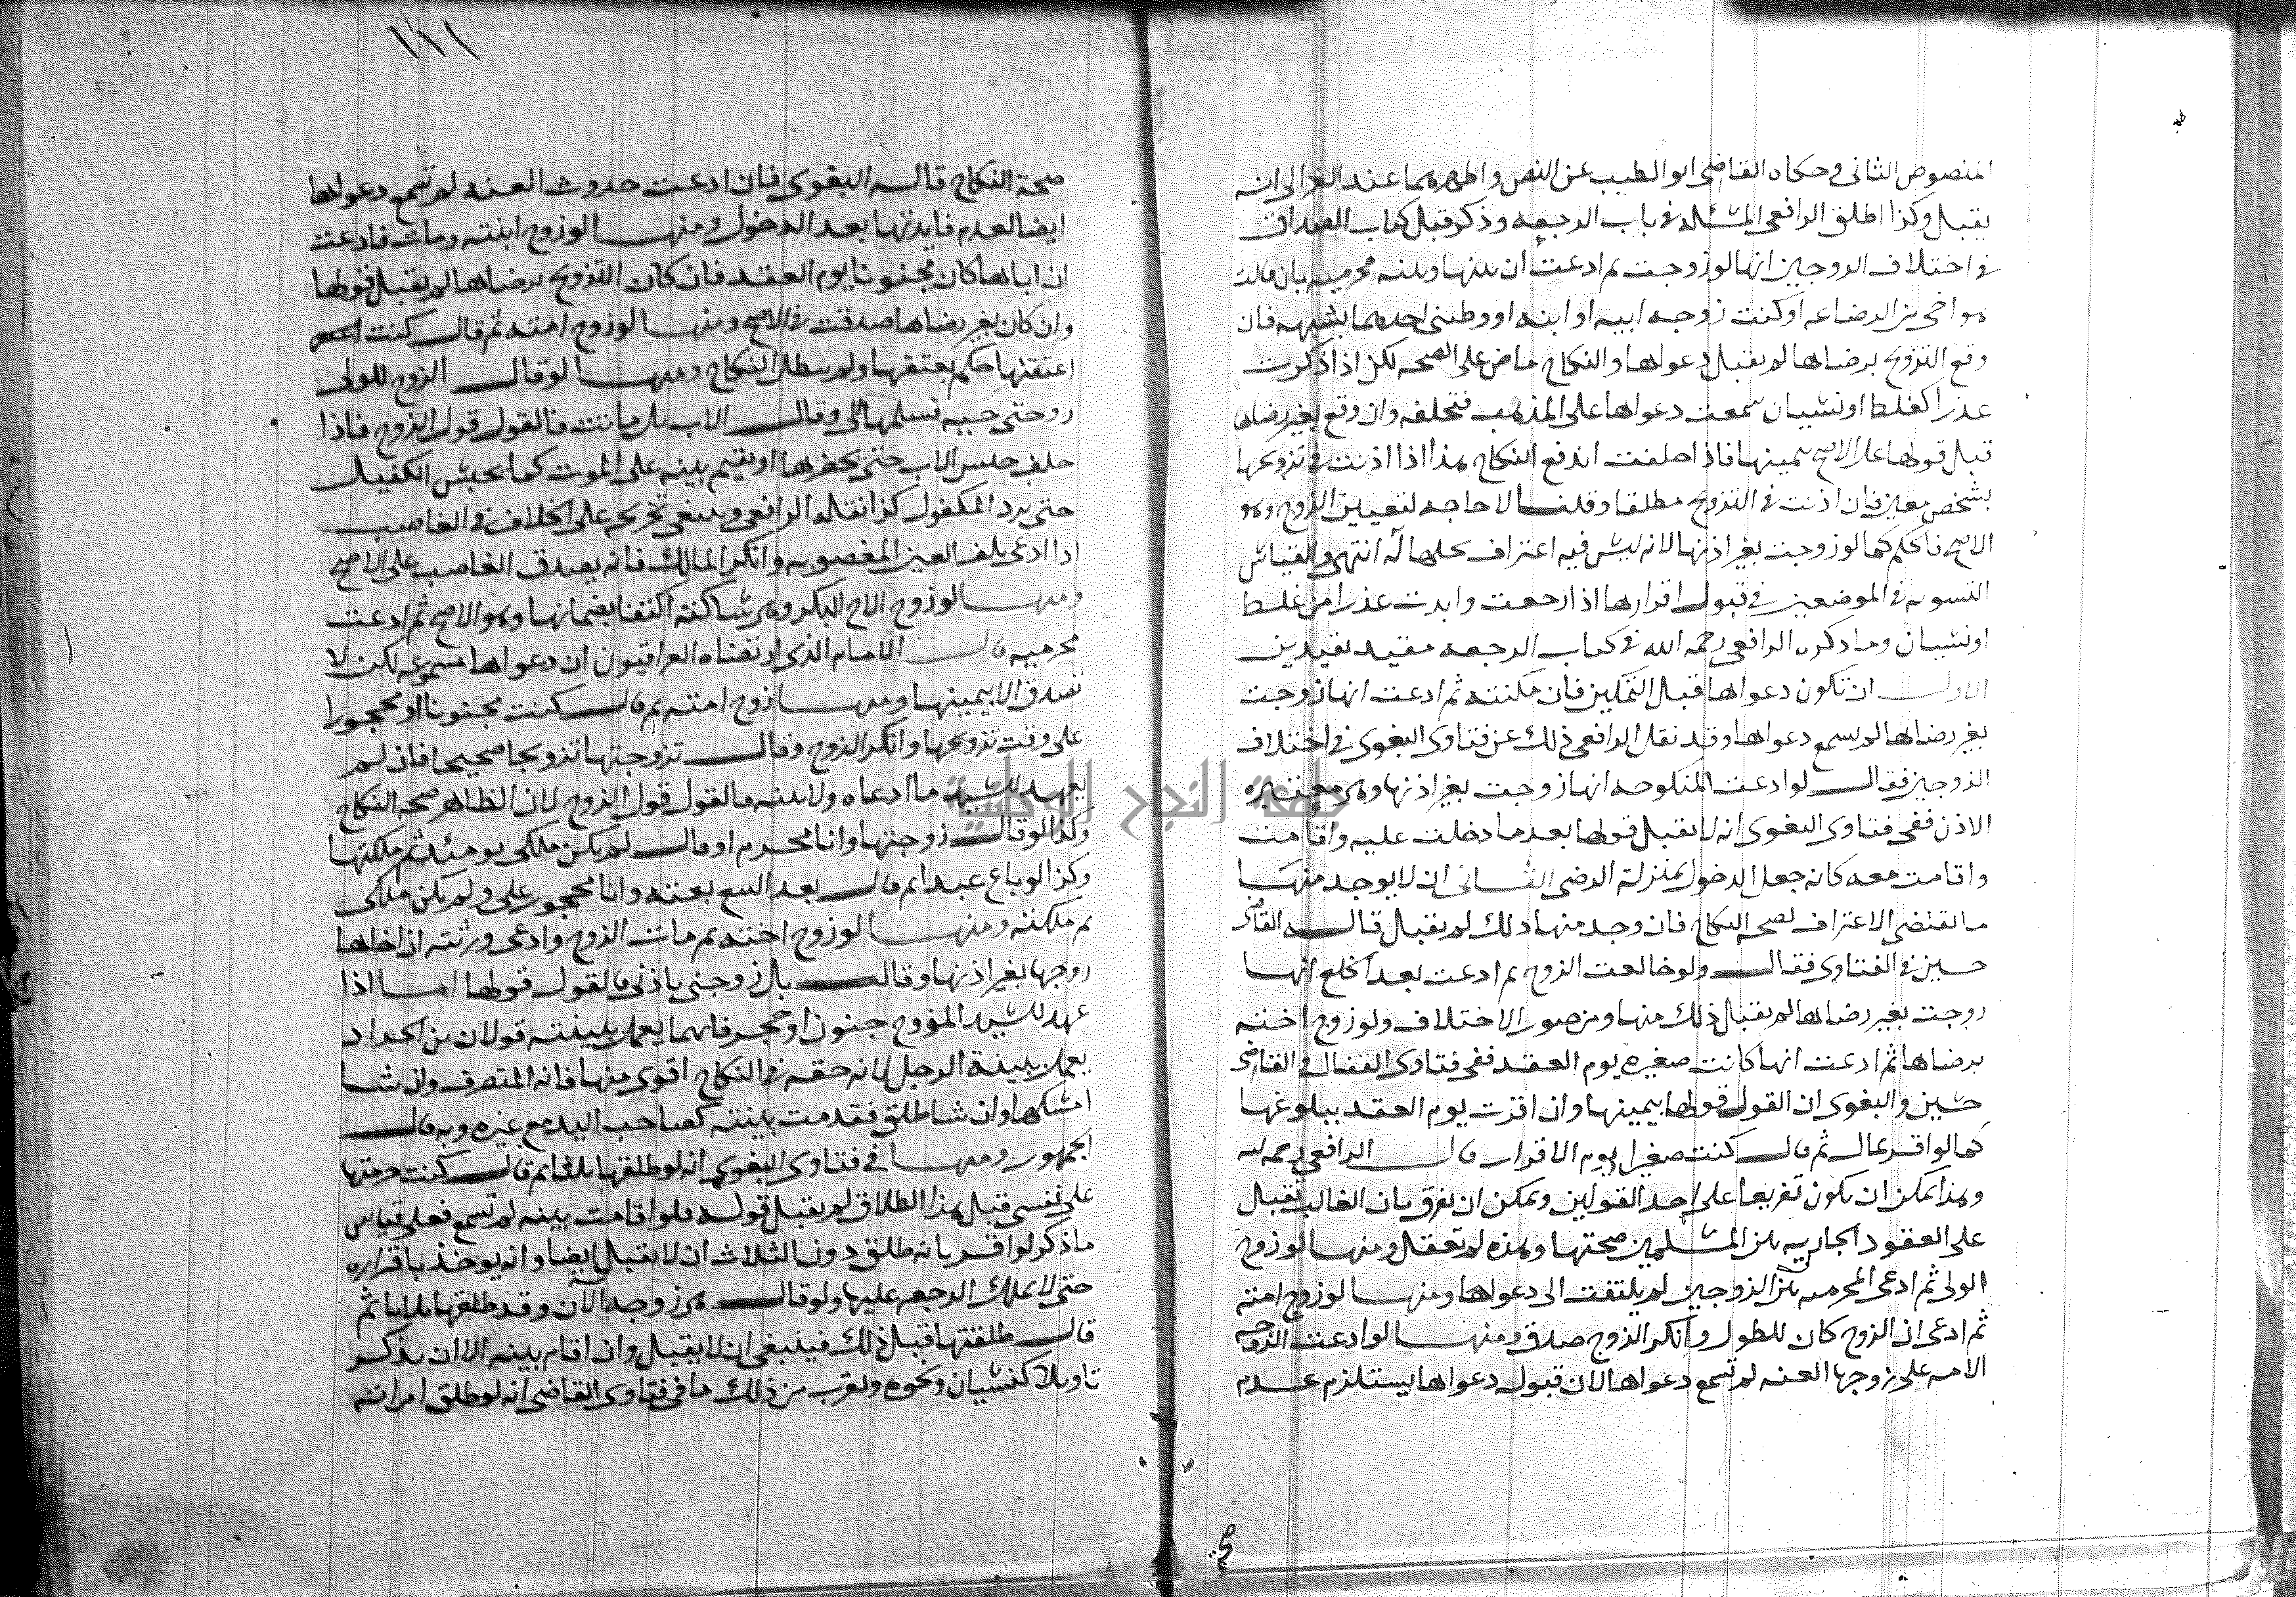 المنصوص الثاني وحكاه القاضي ابو الطيب عن النص واظهرهما عند الغزالي انه
يقبل وكذا اطلق الرافعي المسئلة في باب الرجعه وذكر قبل كتاب الصداق
في اختلاف الزوجين انها لو زوجت ثم ادعت ان بينها وبينه محرميه بان قالت
هو اخي من الرضاعه او كنت زوجه ابيه او ابنه او وطئني احدهما بشبهه فان
وقع التزويج برضاها لم يقبل دعواها والنكاح ماض على الصحه لكن اذا ذكرت
عذرا كغلط او نسيان سمعت دعواها على المذهب فتحلفه وان وقع بغير رضاها
قبل قولها على الاصح بيمينها فاذا حلفت اندفع النكاح هذا اذا اذنت في تزويجها
بشخص معين فان اذنت في التزويج مطلقا وقلنا لا حاجه لتعيين الزوج وهو
الاصح فالحكم كما لو زوجت بغير اذنها لانه ليس فيه اعتراف بحلها له انتهى والقياس
التسويه في الموضعين في قبول اقرارها اذا رجعت وابدت عذرا من غلط
او نسيان وما ذكره الرافعي رحمه الله في كتاب الرجعه مقيد بقيدين
الاول ان تكون دعواها قبل التمكين فان مكنته ثم ادعت انها زوجت
بغير رضاها لم تسمع دعواها وقد نقل الرافعي ذلك عن فتاوى البغوي في اختلاف
الزوجين فقال لو ادعت المنكوحه انها زوجت بغير اذنها وهي معتبره
الاذن ففي فتاوى البغوي انه لا يقبل قولها بعد ما دخلت عليه واقامت
واقامت معه كانه جعل الدخول بمنزلة الرضى الثاني ان لا يوجد منها
ما يقتضي الاعتراف لصحه النكاح فان وجد منها ذلك لم يقبل قاله القاضي
حسين في الفتاوى فقال ولو خالعت الزوج ثم ادعت بعد الخلع انها
زوجت بغير رضاها لم يقبل ذلك منها ومن صور الاختلاف ولو زوج اخته
برضاها ثم ادعت انها كانت صغيره يوم العقد ففي فتاوى القفال والقاضي
حسين والبغوي ان القول قولها بيمينها وان اقرت يوم العقد ببلوغها
كما لو اقر بمال ثم قال كنت صغيرا يوم الاقرار قال الرافعي رحمه الله
وهذا يمكن ان يكون تفريعا على احد القولين ويمكن ان يفرق بان الغالب يقبل
على العقود الجاريه بين المسلمين صحتها وهذه لم تعقل ومنها لو زوج
الولي ثم ادعى المحرميه بين الزوجين لم يلتفت الى دعواها ومنها لو زوج امته
ثم ادعى ان الزوج كان للطول وانكر الزوج صدق ومنها لو ادعت الزوجه
الامه على زوجها العنه لم تسمع دعواها لان قبول دعواها يستلزم عدم
١١١
صحة النكاح قاله البغوي فان ادعت حدوث العنه لم تسمع دعواها
ايضا لعدم فايدتها بعد الدخول ومنها لو زوج ابنته ومات فادعت
ان اباها كان مجنونا يوم العقد فان كان التزويج برضاها لم يقبل قولها
وان كان بغير رضاها صدقت في الاصح ومنها لو زوج امته ثم قال كنت
اعتقتها حكم بعتقها ولم يبطل النكاح ومنها لو قال الزوج للولي
زوجتني حيه فسلمها الي وقال الاب بل ماتت فالقول قول الزوج فاذا
حلف حبس الاب حتى يحضرها او يقيم بينه على الموت كما يحبس الكفيل
حتى يرد المكفول كذا نقله الرافعي وينبغي تخريجه على الخلاف في الغاصب
اذا ادعى تلف العين المغصوبه وانكر المالك فانه يصدق الغاصب على الاصح
ومنها لو زوج الاخ البكر وهي ساكته اكتفا بضمانها وهو الاصح ثم ادعت
محرميه قال الامام الذي ارتضاه العراقيون ان دعواها مسموعه لكن لا
تصدق الا بيمينها ومنها زوج امته ثم قال كنت مجنونا او محجورا
علي وقت تزويجها وانكر الزوج وقال تزوجتها تزويجا صحيحا فان لم
يعهد للسيد ما ادعاه ولا بينه فالقول قول الزوج لان الظاهر صحه النكاح
وكذا لو قال زوجتها وانا محرم او قال لم يكن ملكي يومئذ ثم ملكتها
وكذا لو باع عبدا ثم قال بعد البيع بعته وانا محجور علي ولم يكن ملكي
ثم ملكته ومنها لو زوج اخته ثم مات الزوج وادعى ورثته ان اخاها
زوجها بغير اذنها وقالت بل زوجني باذني فالقول قولها اما اذا
عهد للسيد المزوج جنون او حجر فايهما يعمل ببينته قولان بن الحداد
يعمل ببينة الرجل لانه حقه في النكاح اقوى منها فانه المتصرف وان شا
امسكها وان شا طلق فقدمت بينته كصاحب اليد مع غيره وبه قال
الجمهور ومنها في فتاوى البغوي انه لو طلقها ثلثا ثم قال كنت حرمتها
على نفسي قبل هذا الطلاق لم يقبل قوله فلو اقامت بينه لم تسمع فعلى قياس
ما ذكر لو اقر بانه طلق دون الثلاث ان لا يقبل ايضا وانه يوخذ باقراره
حتى لا يملك الرجعه عليها ولو قال هي زوجه الآن وقد طلقها ثلاثا ثم
قال طلقتها قبل ذلك فينبغي ان لا يقبل وان اقام بينه الا ان يذكر
تاويلا كنسيان ونحوه ويقرب من ذلك ما في فتاوى القاضي انه لو طلق امراته
جامعة النجاح الوطنية